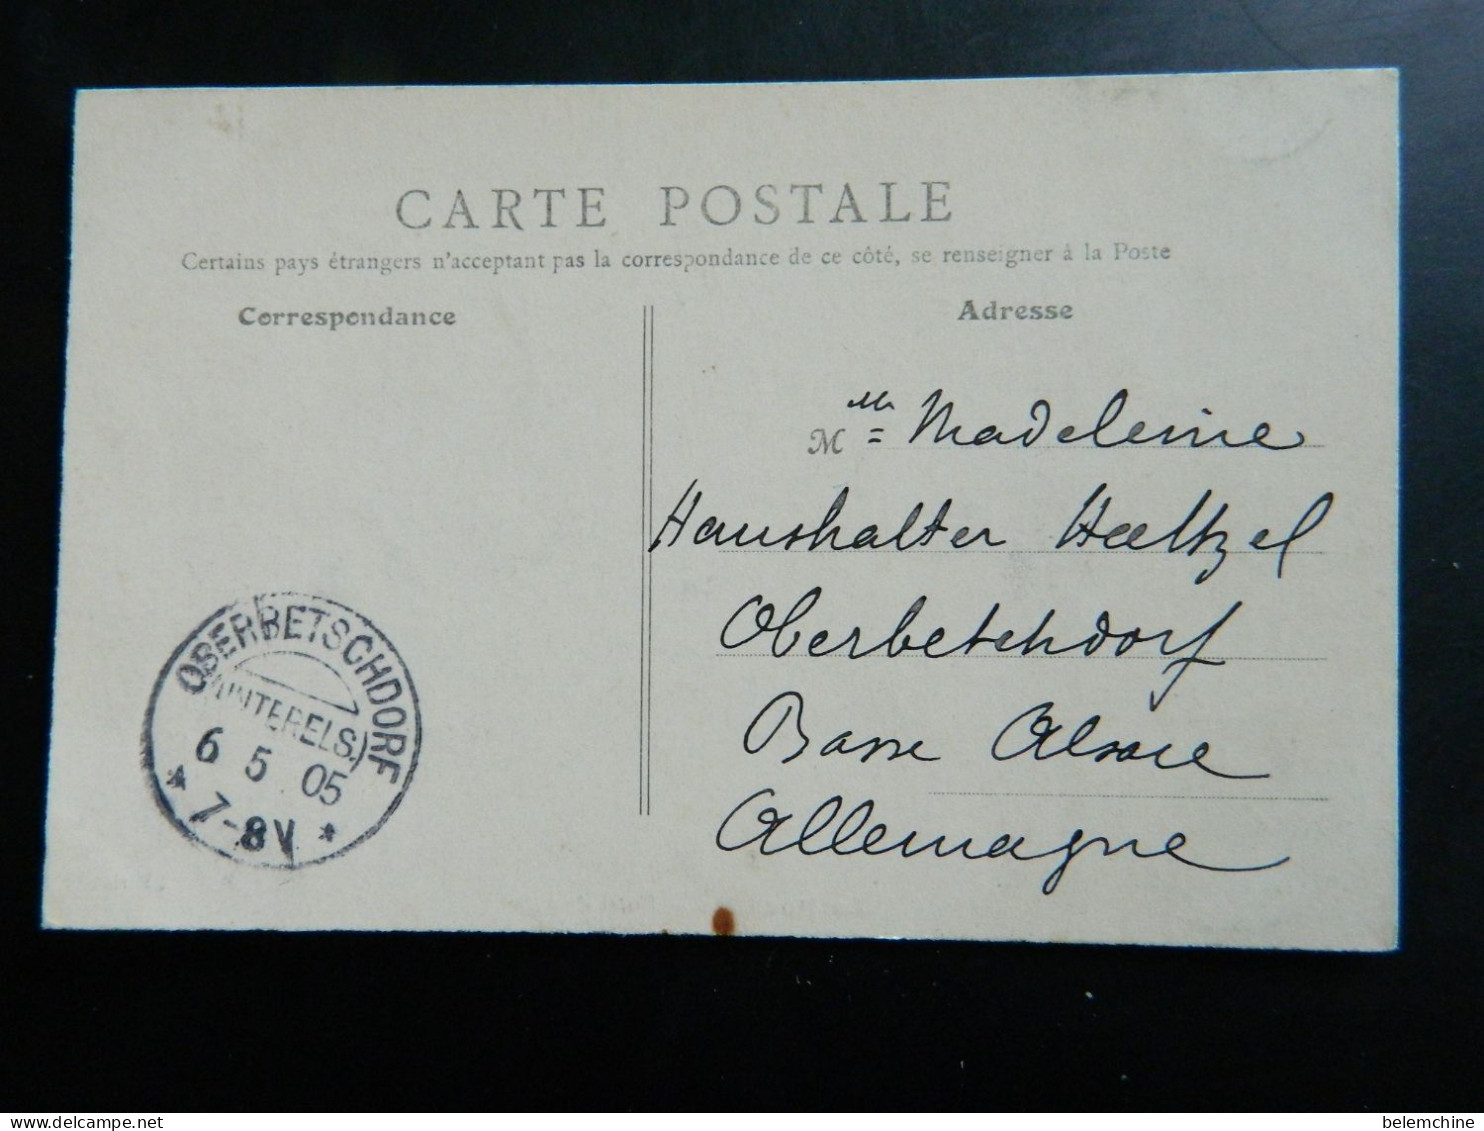 CARTE POSTALE
Certains pays étrangers n'acceptant pas la correspondance de ce côté, se renseigner à la Poste
Correspondance
Adresse
Mlle Madeleine
Haushalter Haeltzel
Oberbetschdorf
Basse Alsace
Allemagne
OBERBETSCHDORF
(UNTERELS.)
6 5 05
* 7-8V *
belemchine